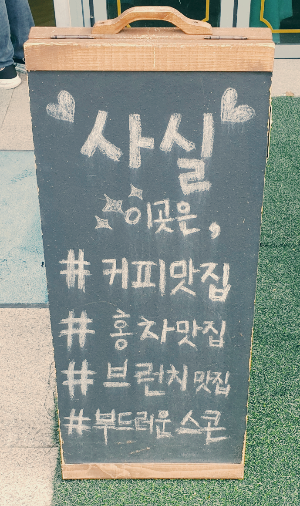 사실
이곳은,
# 커피맛집
# 홍차맛집
# 브런치 맛집
#부드러운 스콘